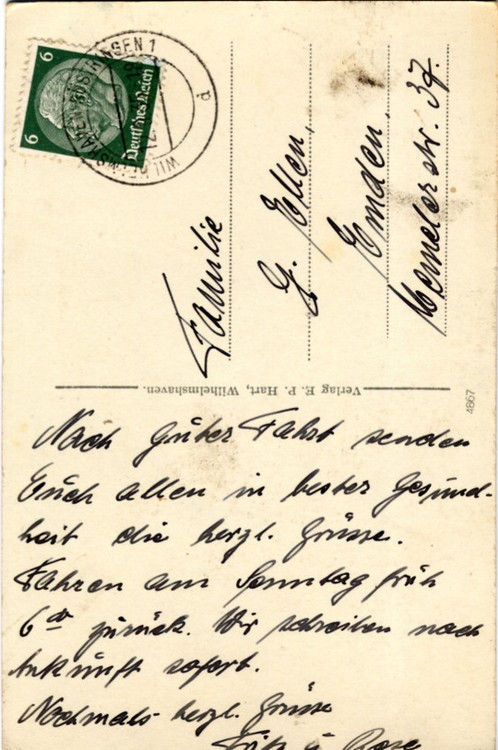 6
6
Deutsches Reich
Familie
G. Ellen,
Emden,
Wemelerstr. 37.
Verlag E. P. Hart, Wilhelmshaven.
4867
Nach guter Fahrt senden
Euch allen in bester Gesund-
heit die herzl. Grüsse.
Fahren am Sonntag früh
6 zurück. Wir schreiben nach
Ankunft sofort.
Nochmals herzl. Grüsse
Fritz u. Rose